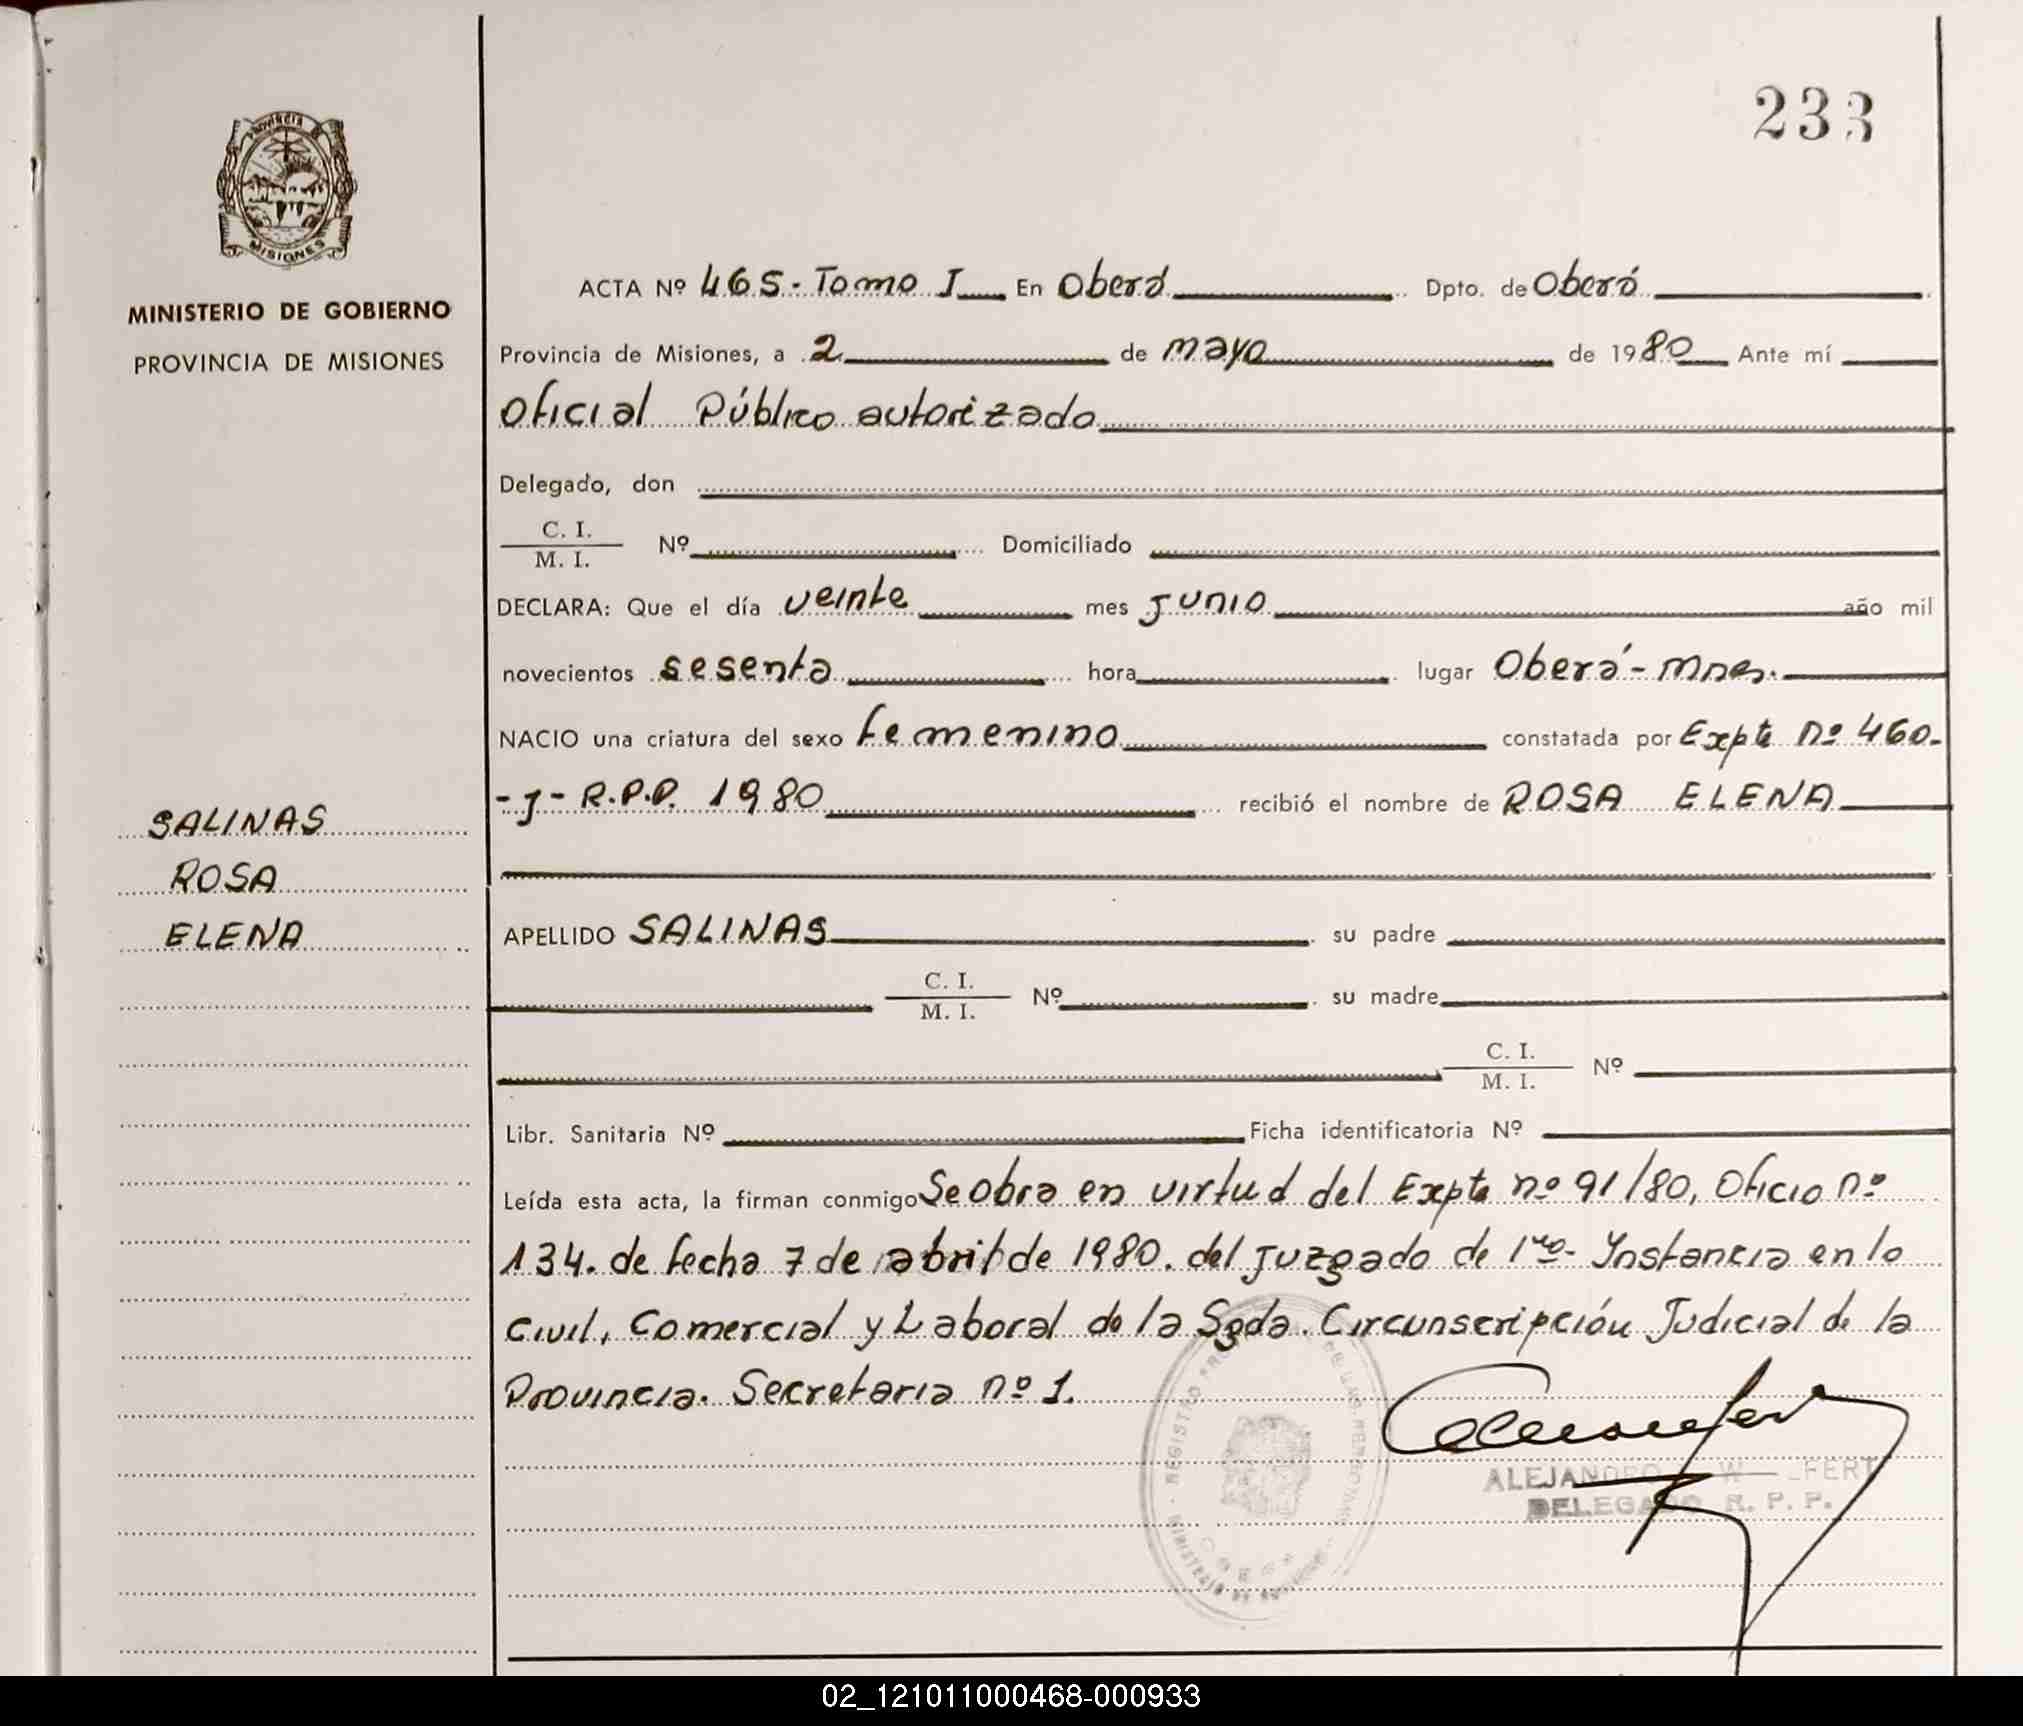 233
PROVINCIA D
MISIONES
MINISTERIO DE GOBIERNO
PROVINCIA DE MISIONES
SALINAS
ROSA
ELENA
ACTA Nº 465 - Tomo I En Oberá Dpto. de Oberá
Provincia de Misiones, a 2 de mayo de 1980 Ante mí
Oficial Público autorizado
Delegado, don
C. I.
M. I. Nº Domiciliado
DECLARA: Que el día veinte mes junio año mil
novecientos sesenta hora lugar Oberá - Mnes.
NACIO una criatura del sexo femenino constatada por Expte nº 460-
- J - R.P.P. 1980 recibió el nombre de ROSA ELENA
APELLIDO SALINAS su padre
C. I.
M. I. Nº su madre
C. I.
M. I. Nº
Libr. Sanitaria Nº Ficha identificatoria Nº
Leída esta acta, la firman conmigo Se obra en virtud del Expte nº 91/80, Oficio nº
134. de fecha 7 de abril de 1980. del Juzgado de 1ra. Instancia en lo
Civil, Comercial y Laboral de la Sgda. Circunscripción Judicial de la
Provincia. Secretaria nº 1.
REGISTRO DE LAS PERSONAS
ALEJANDRO W
DELEGADO R. P. P.
02_121011000468-000933